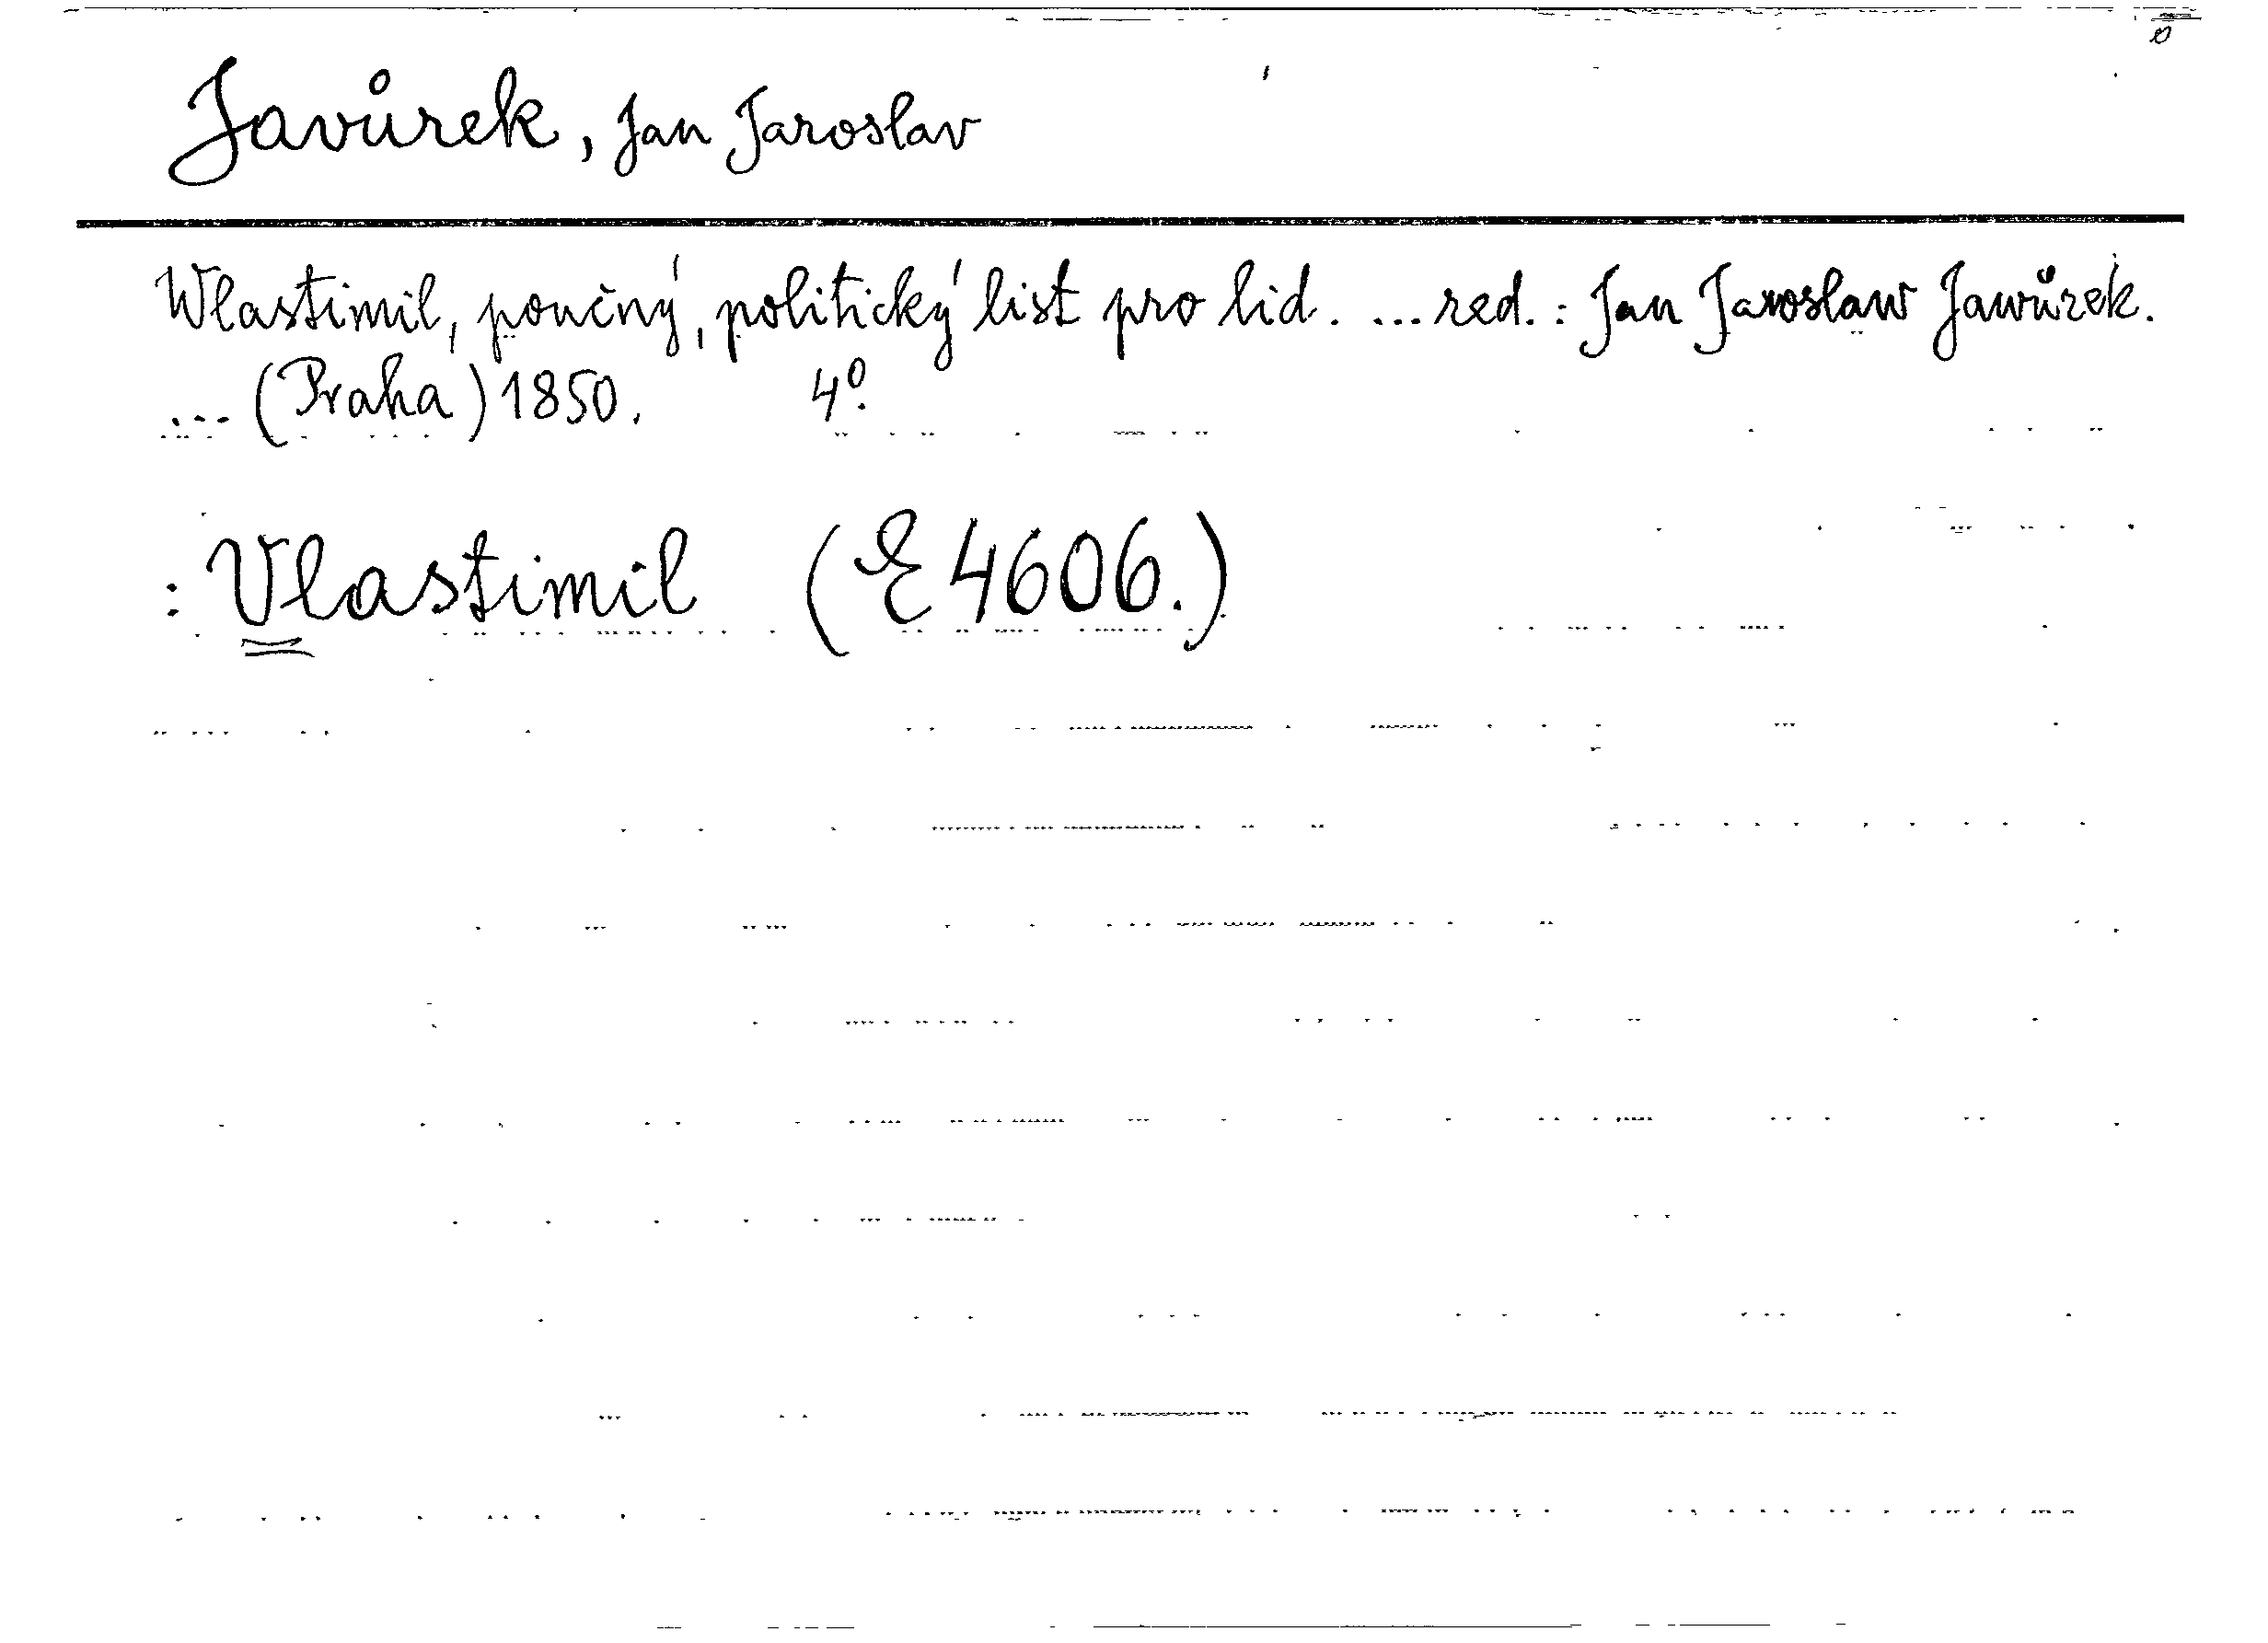 Javůrek, Jan Jaroslav
Wlastimil, poučný, politický list pro lid. ... red.: Jan Jaroslaw Jawůrek.
... (Praha) 1850. 4º.
: Vlastimil (E 4606.)